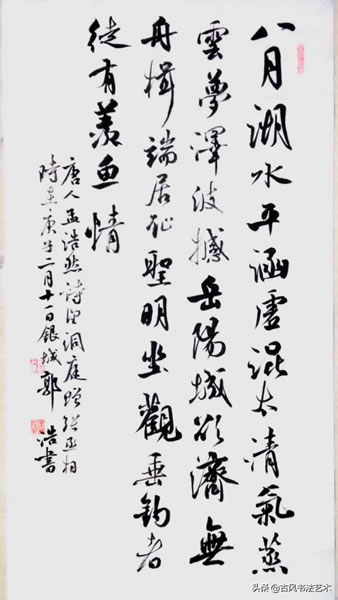 八月湖水平涵虛混太清氣蒸
雲夢澤波撼岳陽城欲濟無
舟楫端居耻聖明坐觀垂釣者
徒有羨魚情
唐人孟浩然詩望洞庭贈張丞相
時在庚子二月十一日銀城郭浩書
头条 @古风书法艺术